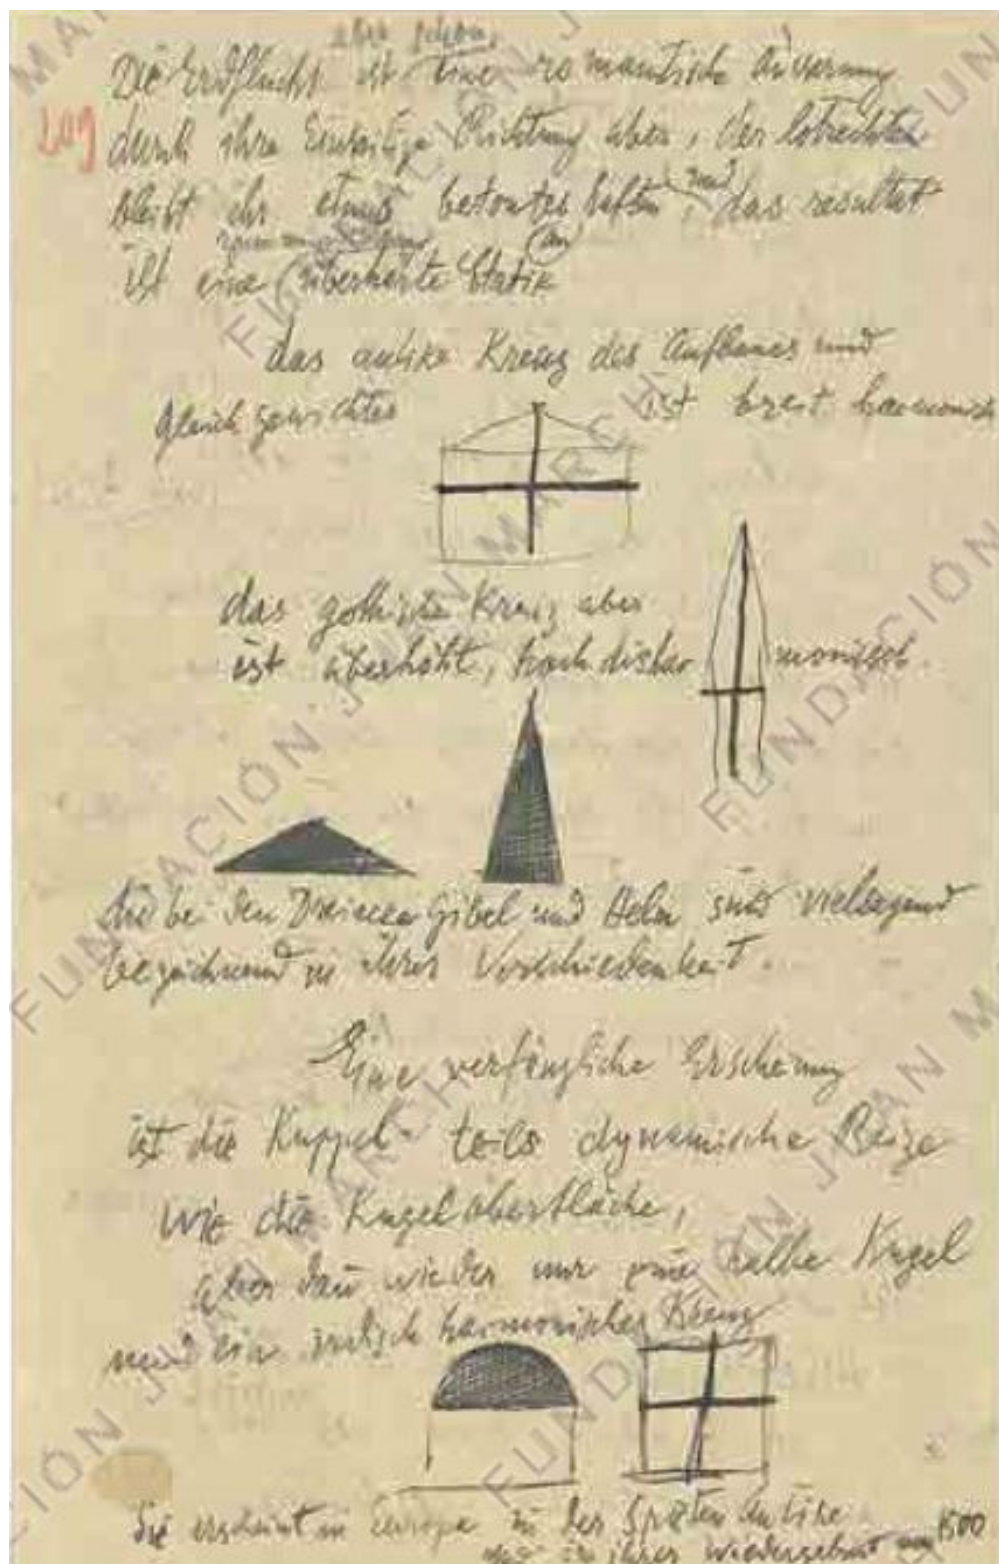 aber schon,
Die Erdflucht ist eine romantische
209 durch ihre Einseitige Richtung aber, der lotrechten
bleibt ihr etwas betontes haften, und das resultat
ist eine überhöhte Statik
das antike Kreuz des Aufbaues und
gleichgewichtes ist breit harmonisch
das gothische Kreuz aber
ist überhöht, hoch disharmonisch.
bei den Dreiecken Gibel und Helm sind vielsagend
bezeichnend in ihrer Verschiedenheit.
Eine verfängliche Erscheinung
ist die Kuppel- teils dynamische Reize
wie die Kugeloberfläche,
aber dan wieder nur eine halbe Kugel
und ein harmonisches Kreuz
Sie erscheint in Europa in der Späten Antike
in ihrer wiedergeburt um 1500
FUNDACIÓN JUAN MARCH